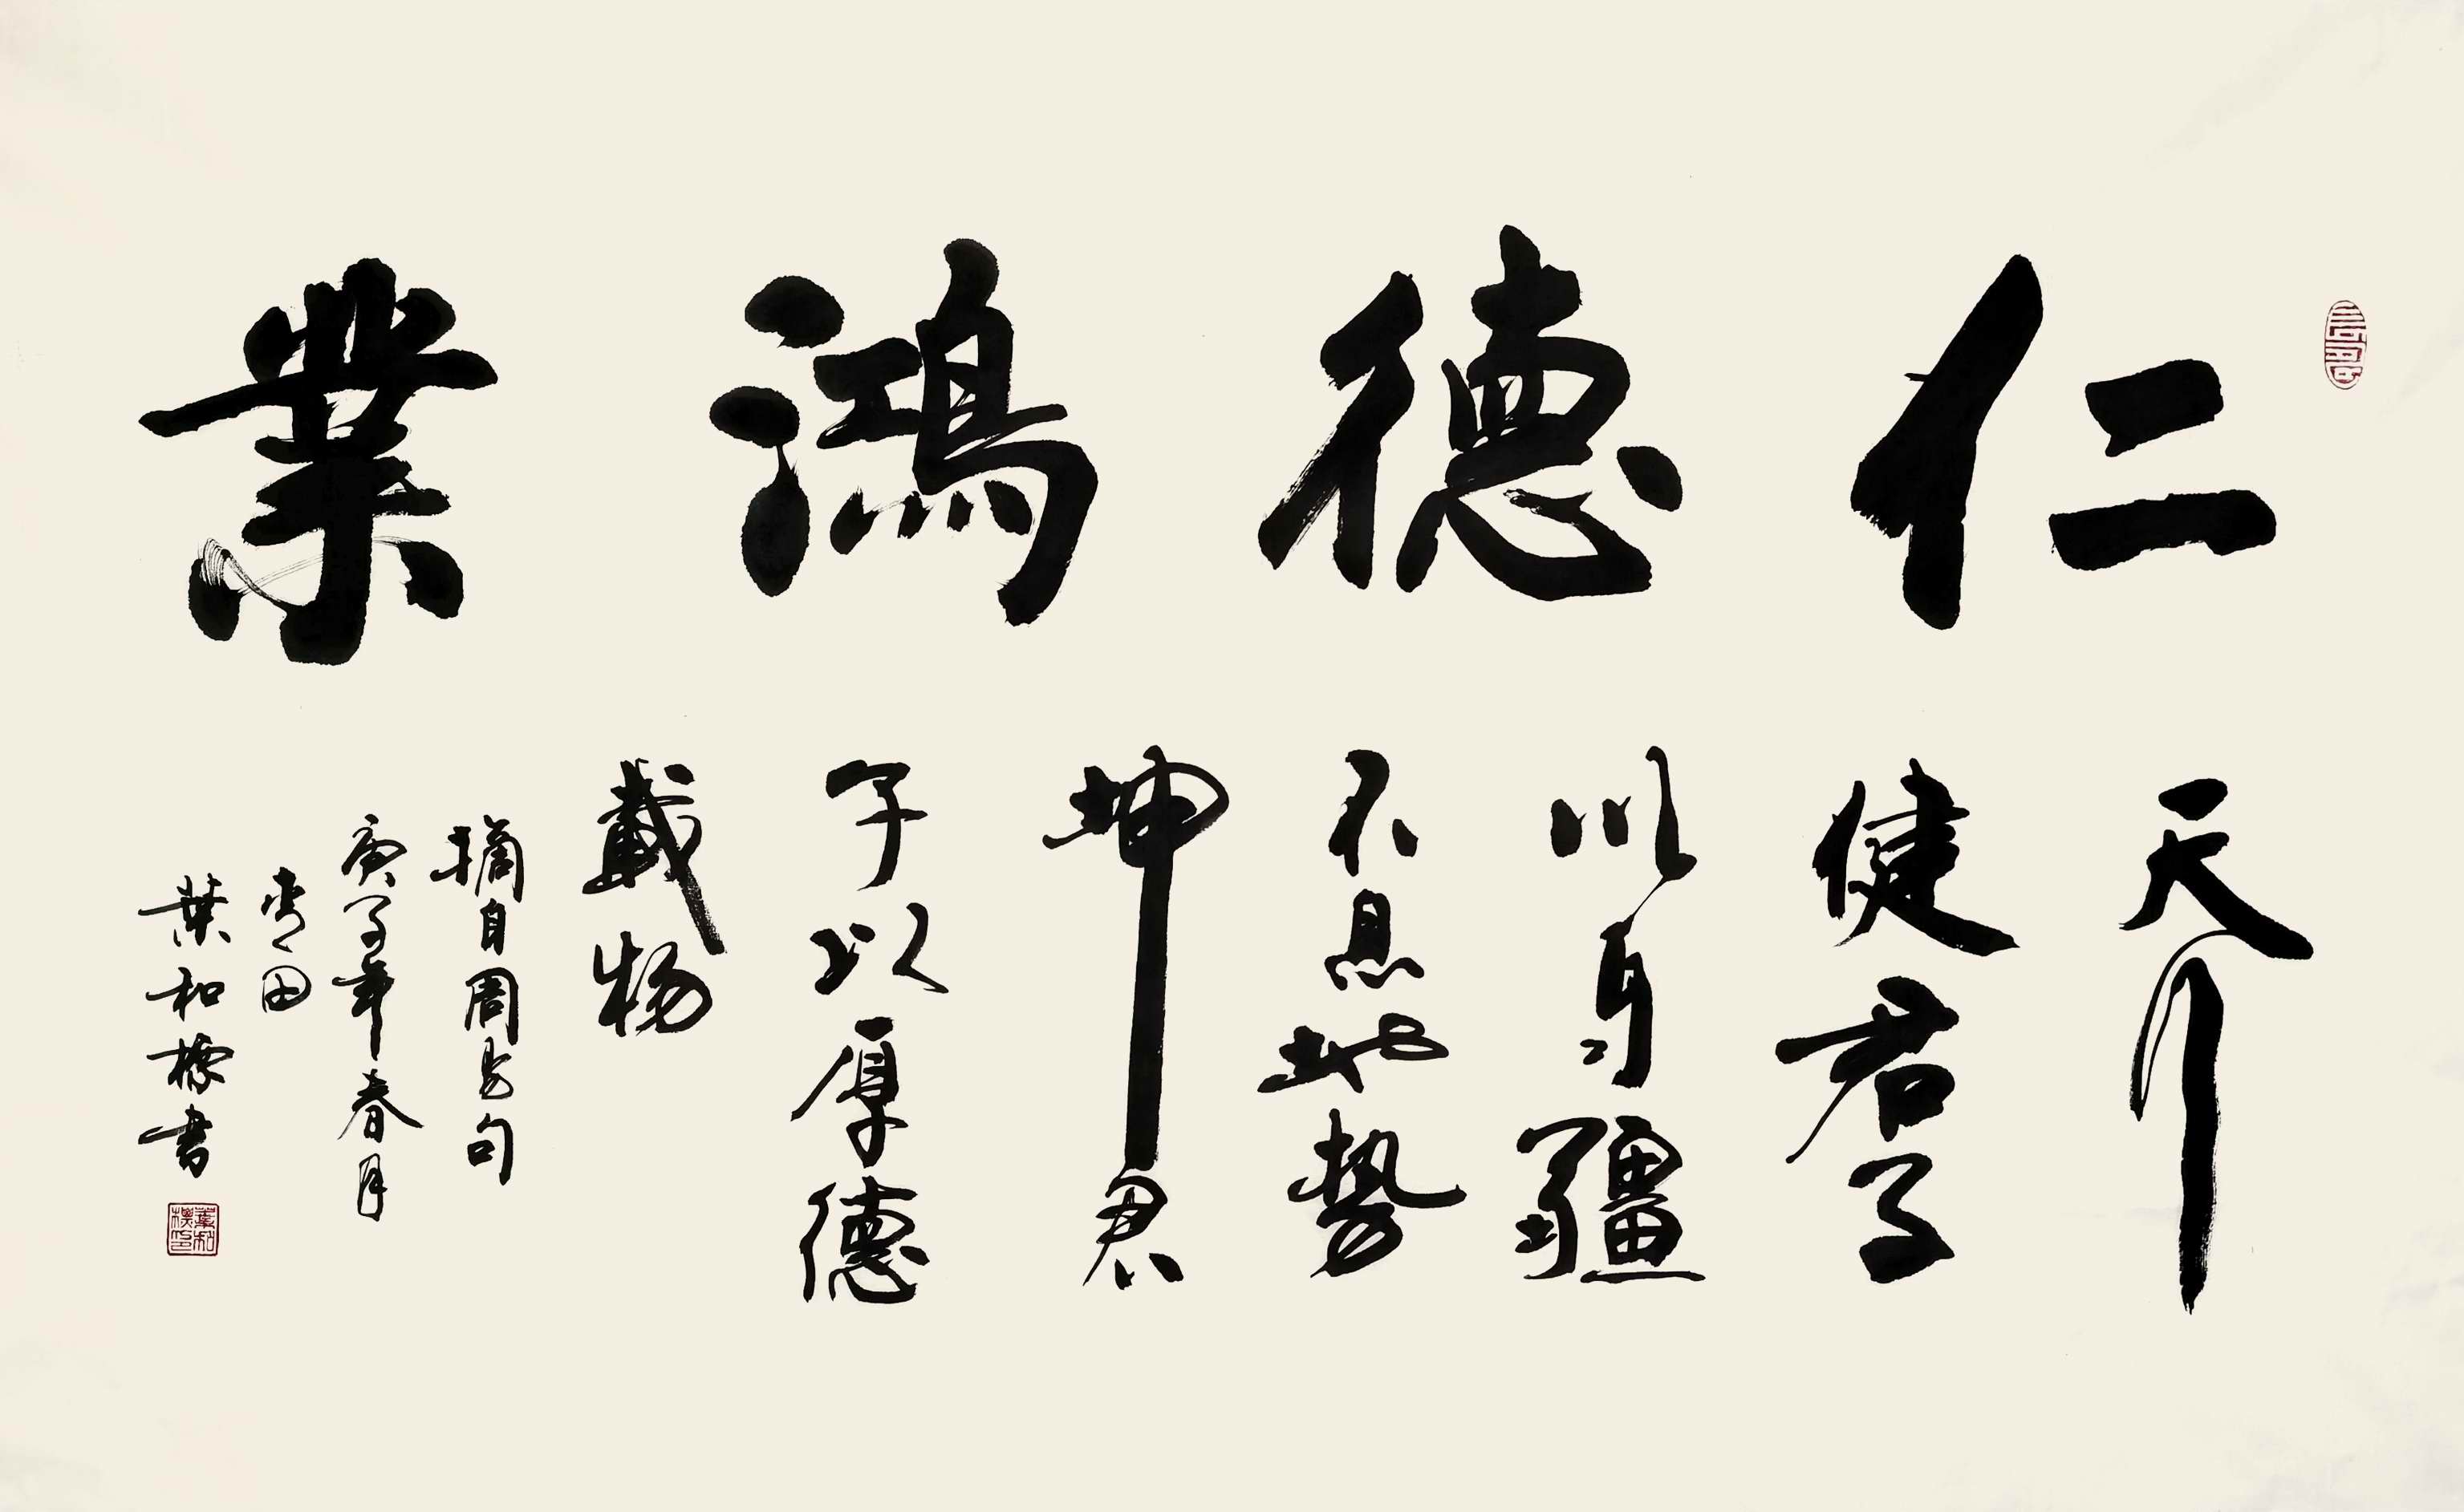 仁德鴻業
天行
健君子
以自疆
不息地勢
坤君
子以厚德
載物
摘自周易句
庚子年春月
青田
葉和書